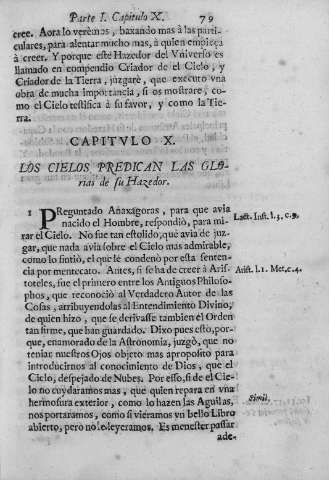 Parte I. Capitulo X. 79
cree. Aora lo verèmos, baxando mas à las parti-
culares, para alentar mucho mas, à quien empieça
à creer. Y porque este Hazedor del Vniverso es
llamado en compendio Criador de el Cielo, y
Criador de la Tierra, juzgarè, que executo vna
obra de mucha importancia, si os mostrare, co-
mo el Cielo testifica à su favor, y como la Tie-
rra.
CAPITVLO X.
LOS CIELOS PREDICAN LAS GLO-
rias de su Hazedor.
1 PReguntado Anaxágoras, para que avia
nacido el Hombre, respondiò, para mi-
rar el Cielo. No fue tan estolido, que avia de juz-
gar, que nada avia sobre el Cielo mas admirable,
como lo sintiò, el que le condenò por esta senten-
cia por mentecato. Antes, si se ha de creer à Aris-
toteles, fue el primero entre los Antiguos Philoso-
phos, que reconociò al Verdadero Autor de las
Cosas, atribuyendolas al Entendimiento Divino,
de quien hizo, que se derivasse tambien el Orden
tan firme, que han guardado. Dixo pues esto, por-
que, enamorado de la Astronomia, juzgò, que no
tenian nuestros Ojos objeto mas aproposito para
introducirnos al conocimiento de Dios, que el
Cielo, despejado de Nubes. Por esso, si de el Cie-
lo no cuydaramos mas, que quien repara en vna
hermosura exterior, como lo hazen las Aguilas,
nos portaramos, como si vieramos vn bello Libro
abierto, pero no lo leyeramos. Es menester passar
ade-
Lact. Inst. l.3. c.9.
Arist. l.1. Met. c.4.
Simil.